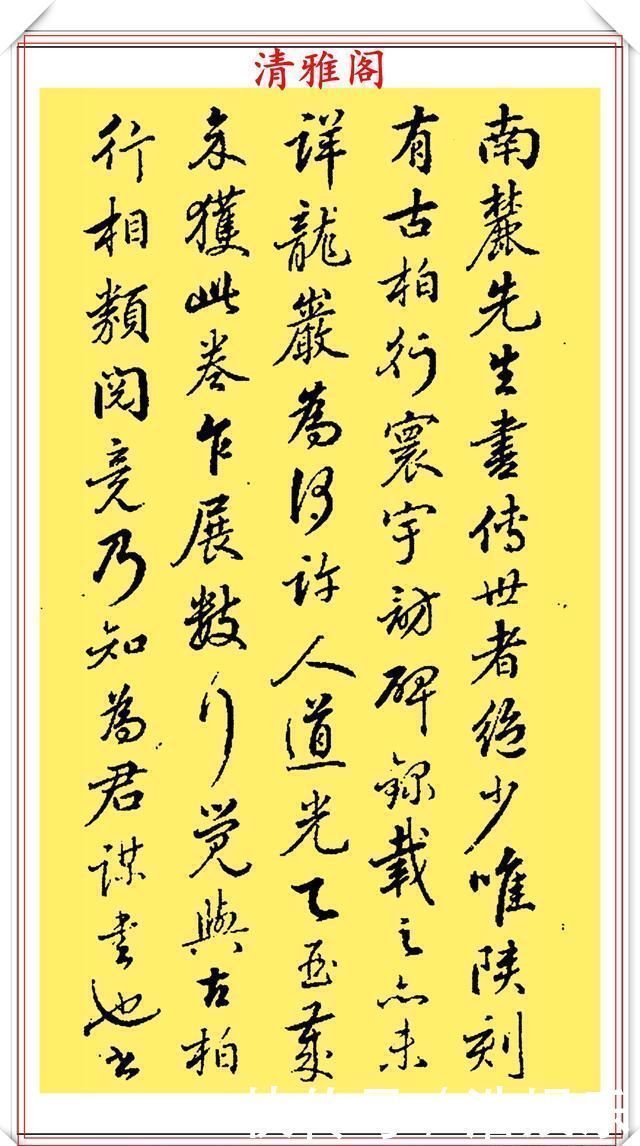 清雅阁
南麓先生書傳世者絕少唯陝刻
有古柏行寰宇訪碑錄載之亦未
詳龍巖為何許人道光乙酉歲
余獲此卷乍展數行覺與古柏
行相類閱竟乃知為君謀書也